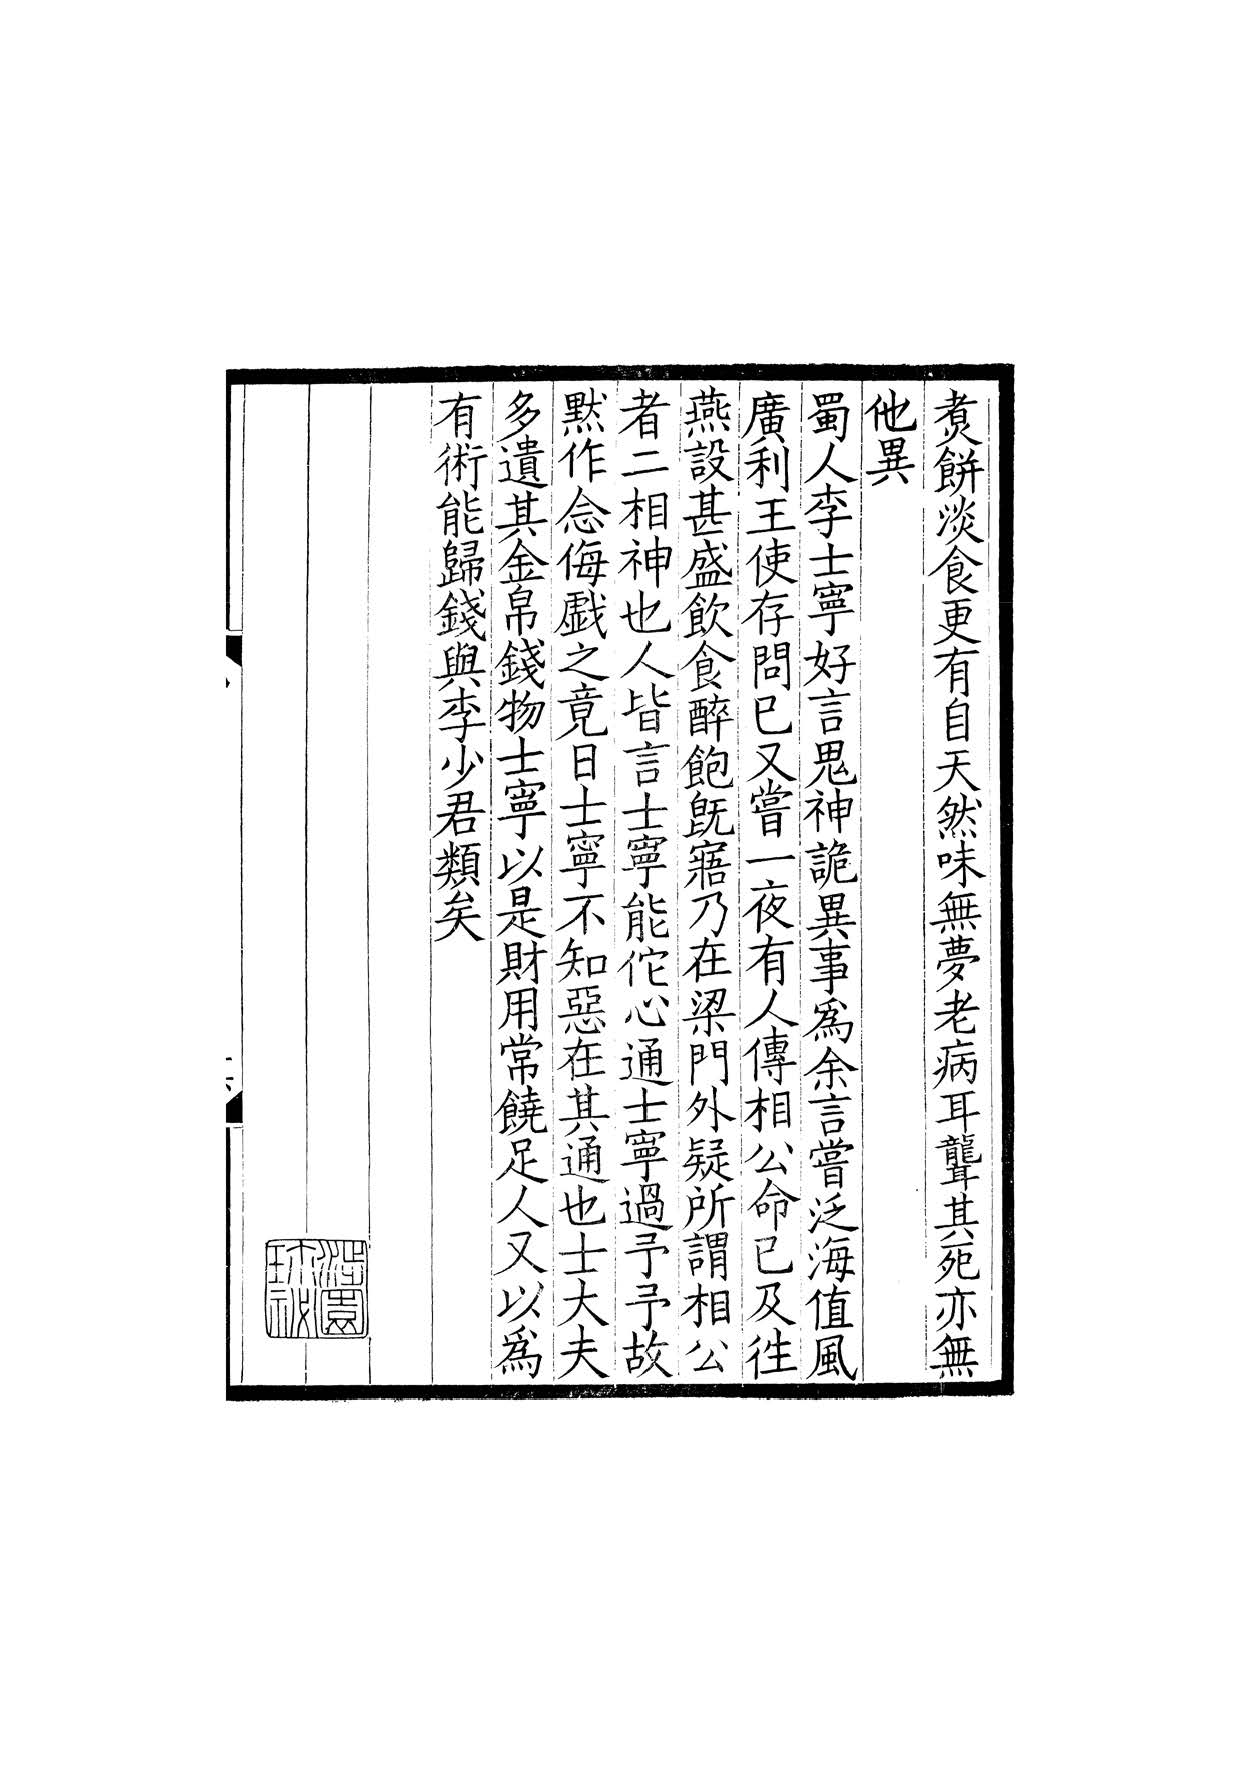 煑餅淡食更有自天然味無夢老病耳聾其死亦無
他異
蜀人李士寧好言鬼神詭異事爲余言嘗泛海值風
廣利王使存問已又嘗一夜有人傳相公命已及徃
燕設甚盛飲食醉飽旣寤乃在梁門外疑所謂相公
者二相神也人皆言士寧能佗心通士寧過予予故
默作念侮戲之竟日士寧不知惡在其通也士大夫
多遺其金帛錢物士寧以是財用常饒足人又以爲
有術能歸錢與李少君類矣